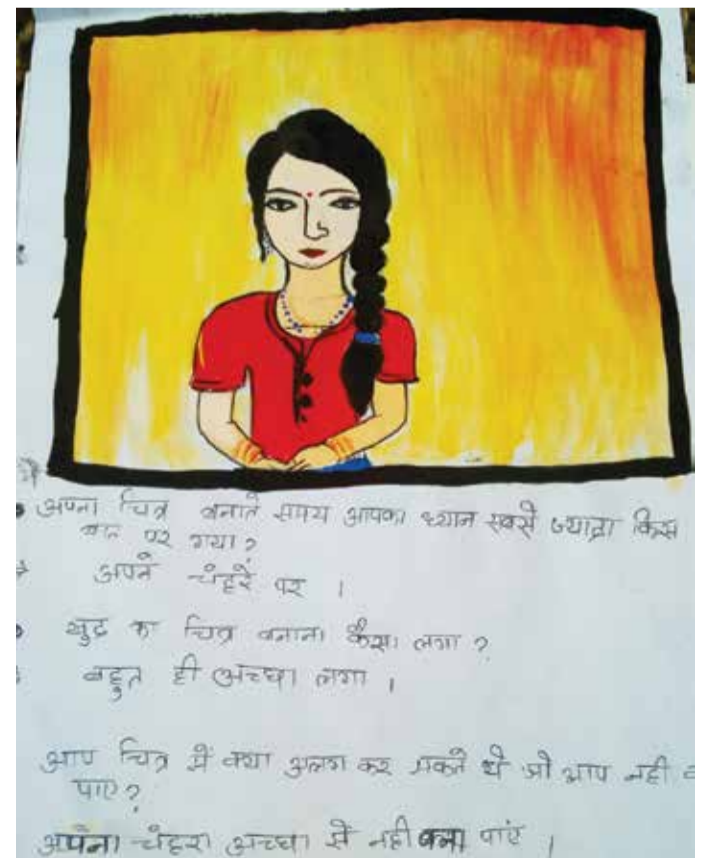 अपना चित्र बनाते समय आपका ध्यान सबसे ज्यादा किस
बात पर गया?
अपने चेहरें पर ।
खुद का चित्र बनाना कैसा लगा ?
बहुत ही अच्छा लगा ।
आप चित्र में क्या अलग कर सकते थे जो आप नही
पाए?
अपना चेहरा अच्छा से नही बना पाएं ।